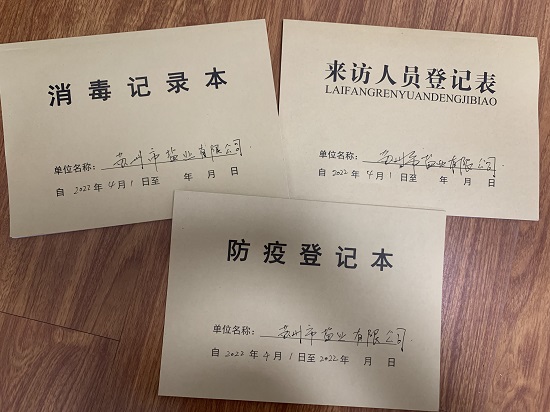 消毒记录本
单位名称：苏州市盐业有限公司
自 2022 年 4 月 1 日至 年 月 日
来访人员登记表
LAIFANGRENYUANDENGJIBIAO
单位名称：苏州市盐业有限公司
自 2022 年 4 月 1 日至 年 月 日
防疫登记本
单位名称：苏州市盐业有限公司
自 2022 年 4 月 1 日至 2022 年 月 日